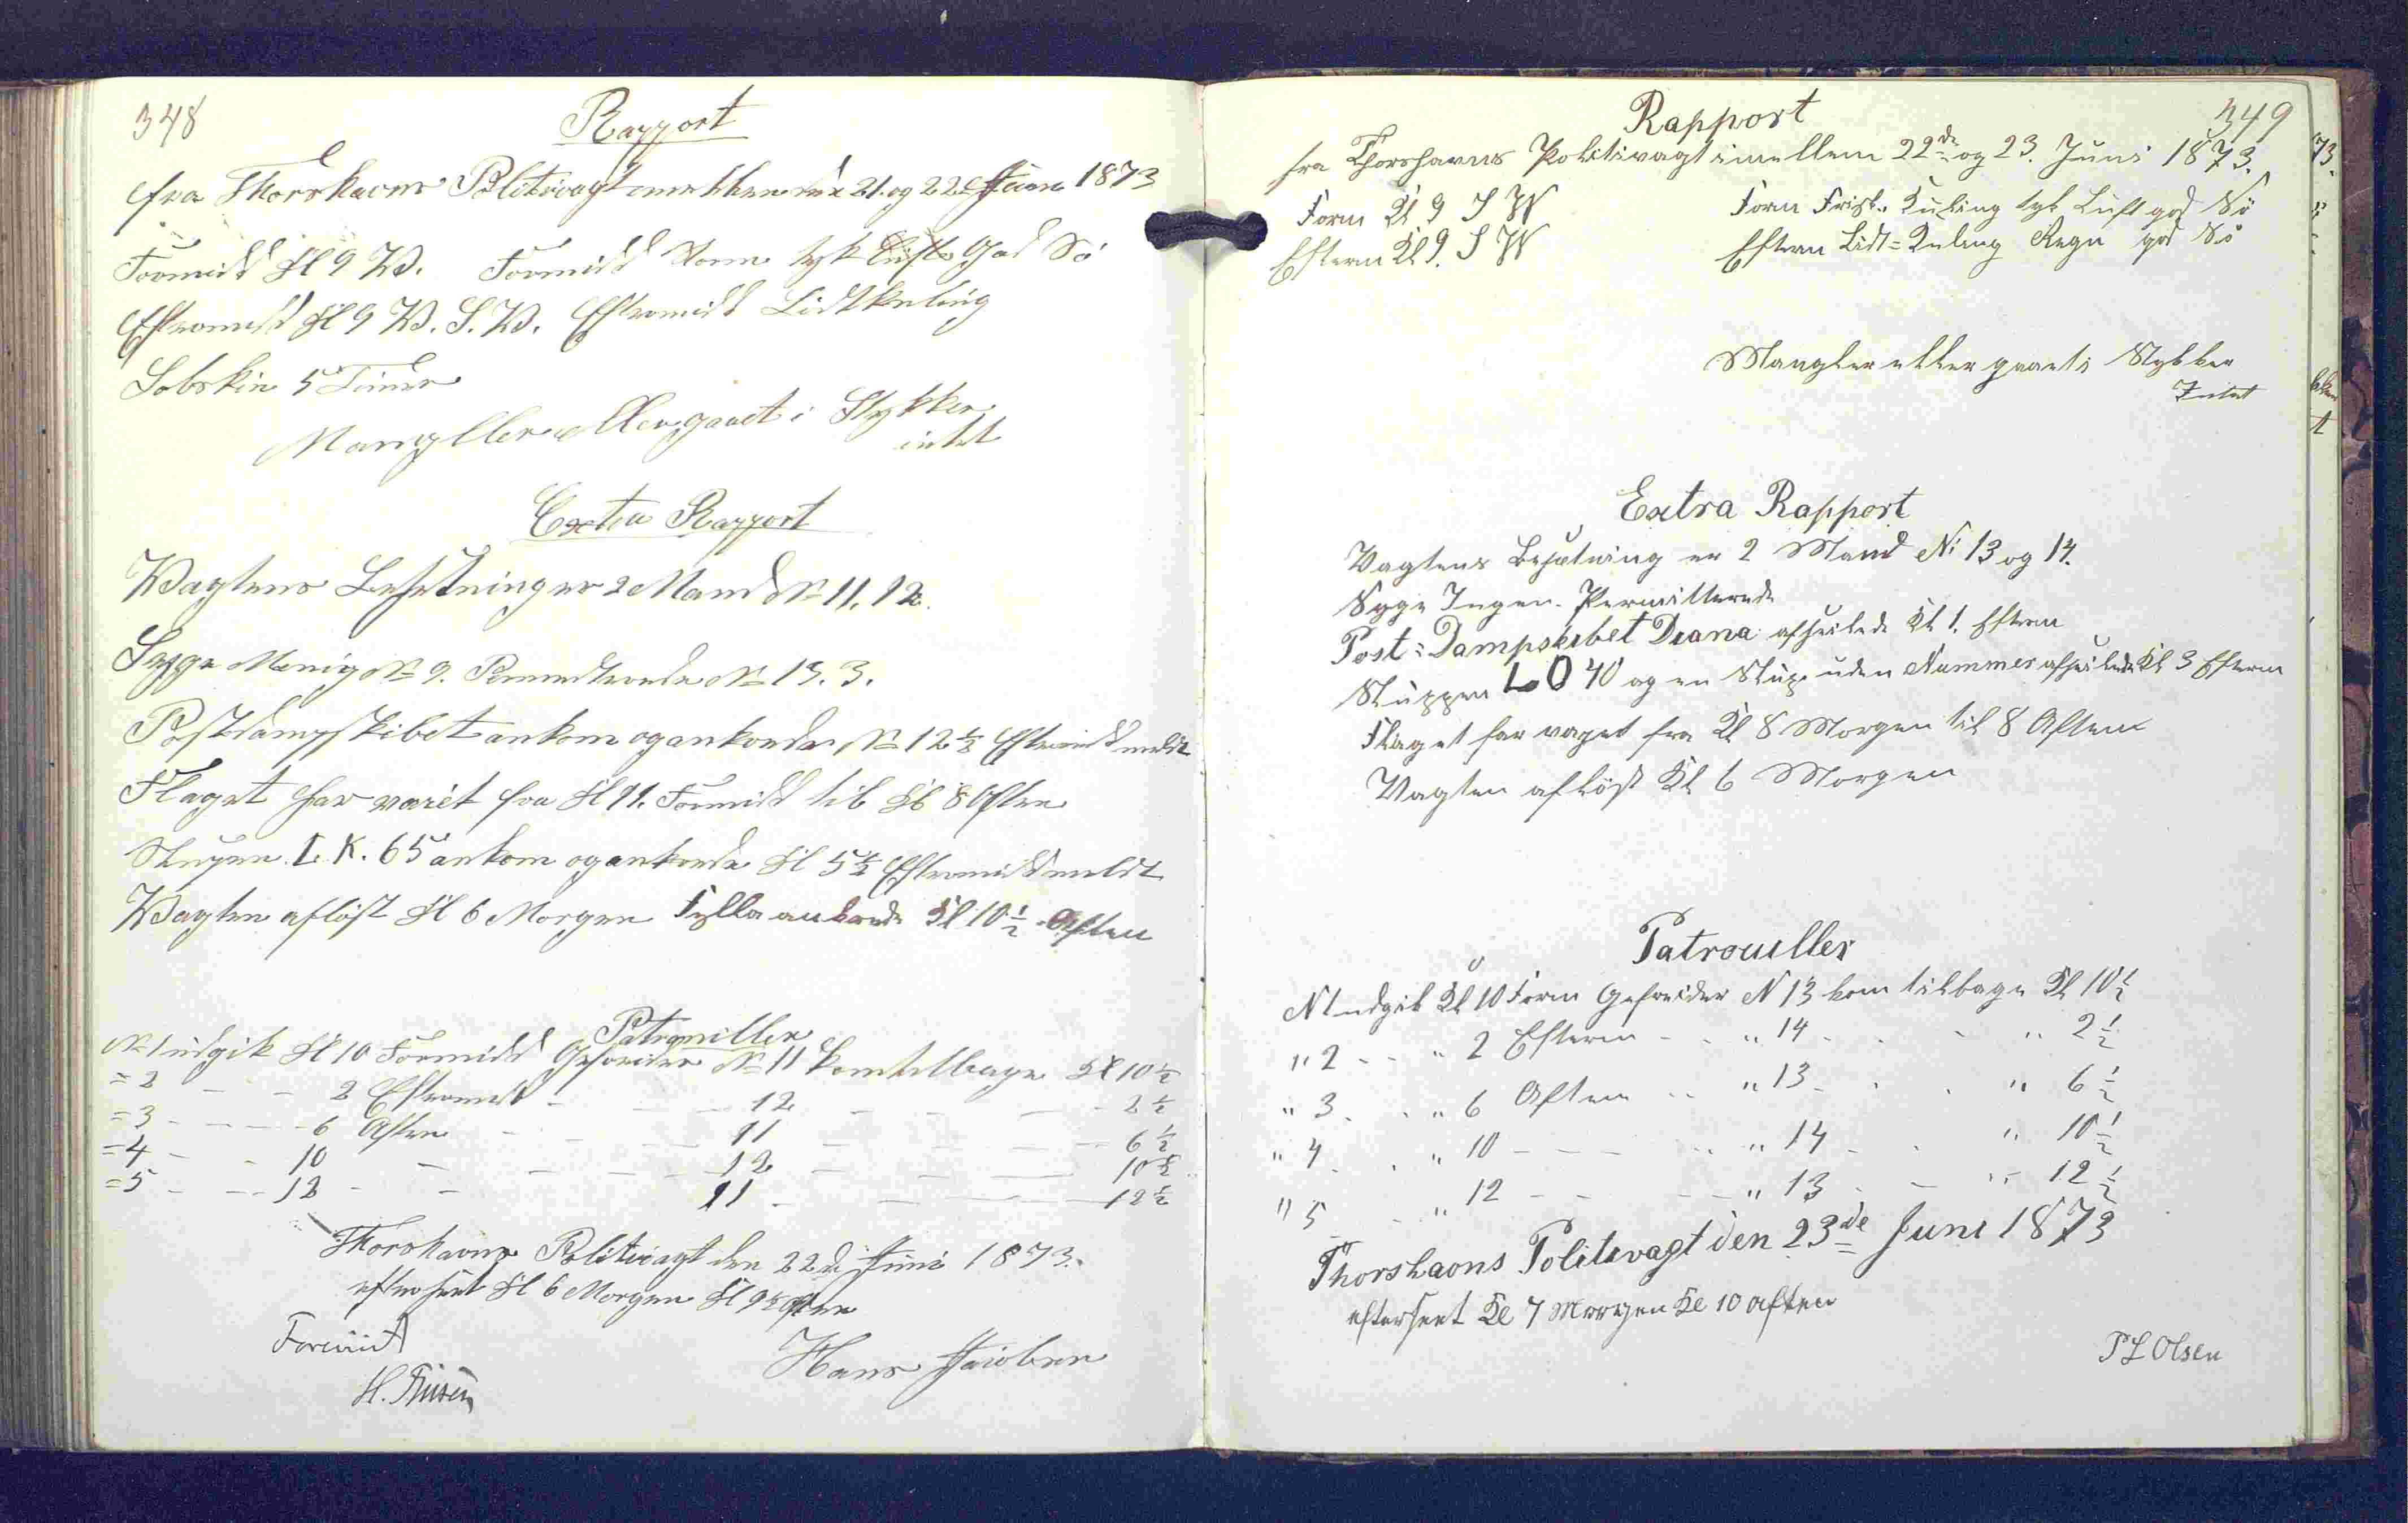 348
Rapport
fra Thorshavns Politivagt imellem den 21. og 22. Juni 1873
Formidd Kl 9 W. Formidd Tyk Luft God Sö
Eftermidd Kl 9 W. S. W. Eftermidd Lidtkuling
Solskin 5 Timer
Mangller eller gaaet i Stykker
intet
Extra Rapport
Wagtens Besetning er 2 Mand No 11. 12.
Syge Menig No 9. Permitterede No 13. 3.
Postdampskibet ankom og ankrede Kl 12½ Eftermidd meldt
Flaget har varet fra Kl 11. Formidd til Kl 8 Aften
Slupen L. K. 65 ankom og ankrede Kl 5½ Eftermidd meldt
Wagten aflöst Kl 6 Morgen Fylla ankrede Kl 10½ Aften
Patrouiller
No 1 udgik Kl 10 Formidd Gefreider No 11 kom tilbage Kl 10½
= 2 - - 2 Eftermidd - - 12 - - - 2½
= 3 - - - 6 Aften - - 11 - - - 6½
= 4 - - 10 - - - - 12 - - 10½
= 5 - - - 12 - - 11 - - - 12½
Thorshavns Politivagt den 22de Juni 1873.
efterseet Kl 6 Morgen Kl 9½ Aften
Foreviist
Hans Jacobsen
349
Rapport
fra Thorshavns Politivagt imellem 22de og 23. Juni 1873.
Form Kl 9 S W Form Frisk. Kuling tyk Luft god Sö
Efterm Kl 9. S W Efterm Lidt=Kuling Regn god Sö
Mangler eller gaaet i Stykker
Intet
Extra Rapport
Vagtens Besætning er 2 Mand No 13 og 14.
Syge Ingen. Permitterede
Post=Dampskibet Diana afseilede Kl 1. Efterm
Sluppen LO 40 og en Slup uden Nummer afseilede Kl 3 Efterm
Flaget har vaget fra Kl 8 Morgen til 8 Aften
Vagten aflöst Kl 6 Morgen
Patrouiller
N 1 udgik Kl 10 Form Gefreider N 13 kom tilbage Kl 10½
" 2 - - " 2 Efterm - - " 14 - - - " 2½
" 3 - - " 6 Aften - - " 13 - - - " 6½
" 4 - - " 10 - - - - - " 14 - - " 10½
" 5 - - " 12 - - - - " 13 - - " 12½
Thorshavns Politivagt den 23de Juni 1873
efterseet Kl 7 Morgen Kl 10 Aften
P L Olsen